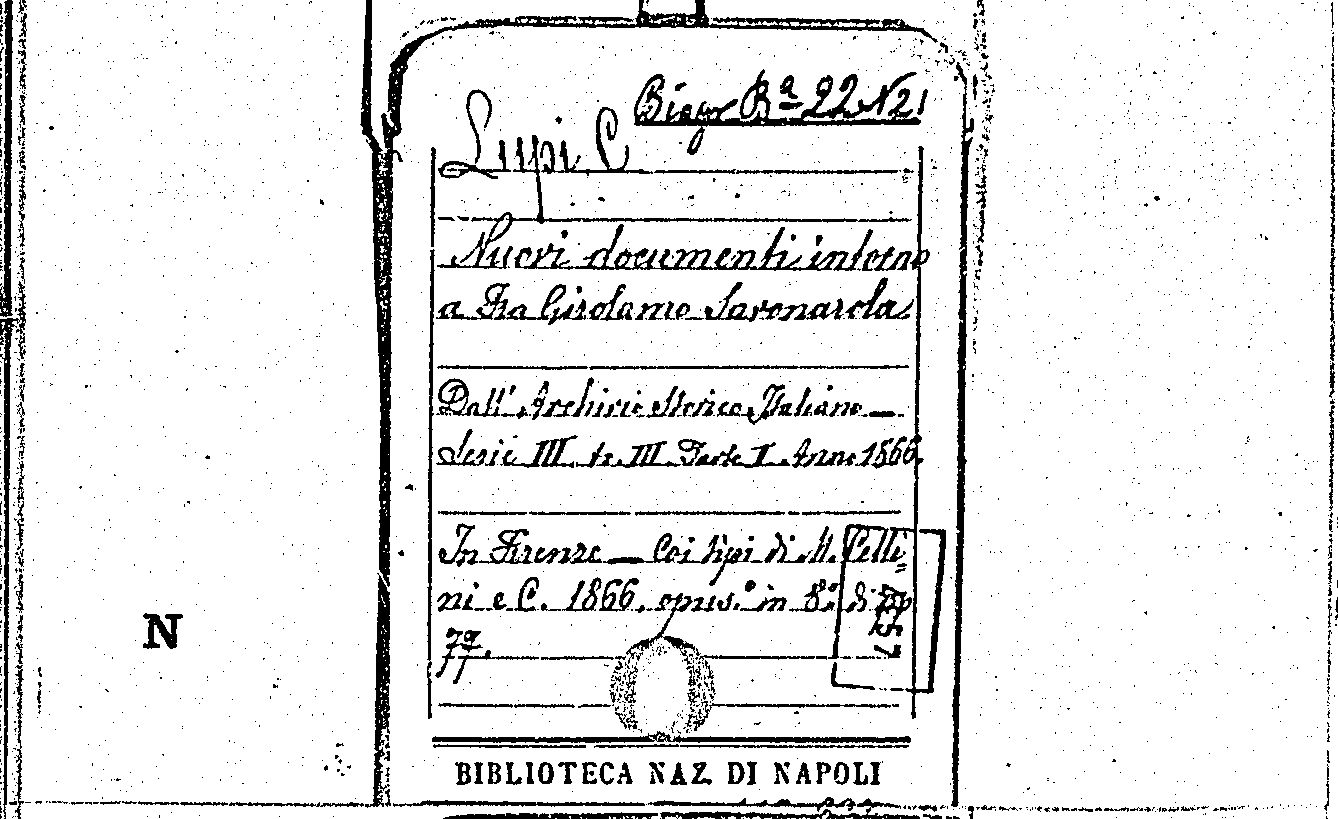 Biogr Bª 22 N21
Lupi C
Nuovi documenti intorno
a Fra Girolamo Savonarola
Dall' Archivio Storico Italiano —
Serie III. to. III. Parte I. Anno 1866.
In Firenze — Coi tipi di M. Celli=
ni e C. 1866. opus.° in 8.° di pp
79.
N
BIBLIOTECA NAZ. DI NAPOLI